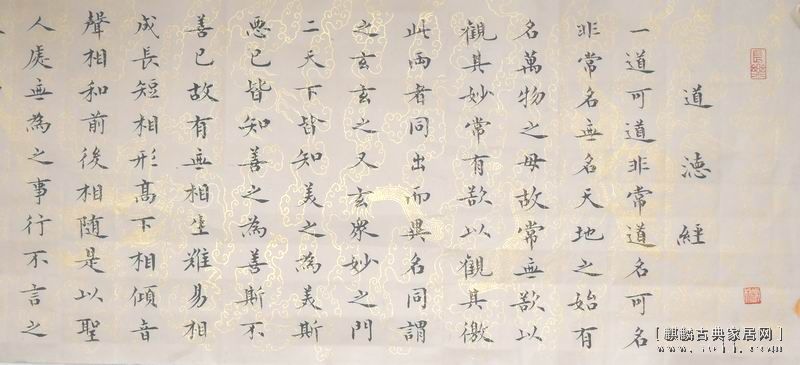 道德經
一道可道非常道名可名
非常名無名天地之始有
名萬物之母故常無欲以
觀其妙常有欲以觀其徼
此兩者同出而異名同謂
之玄玄之又玄衆妙之門
二天下皆知美之為美斯
惡已皆知善之為善斯不
善已故有無相生難易相
成長短相形高下相傾音
聲相和前後相隨是以聖
人處無為之事行不言之
[麒麟古典家居网]